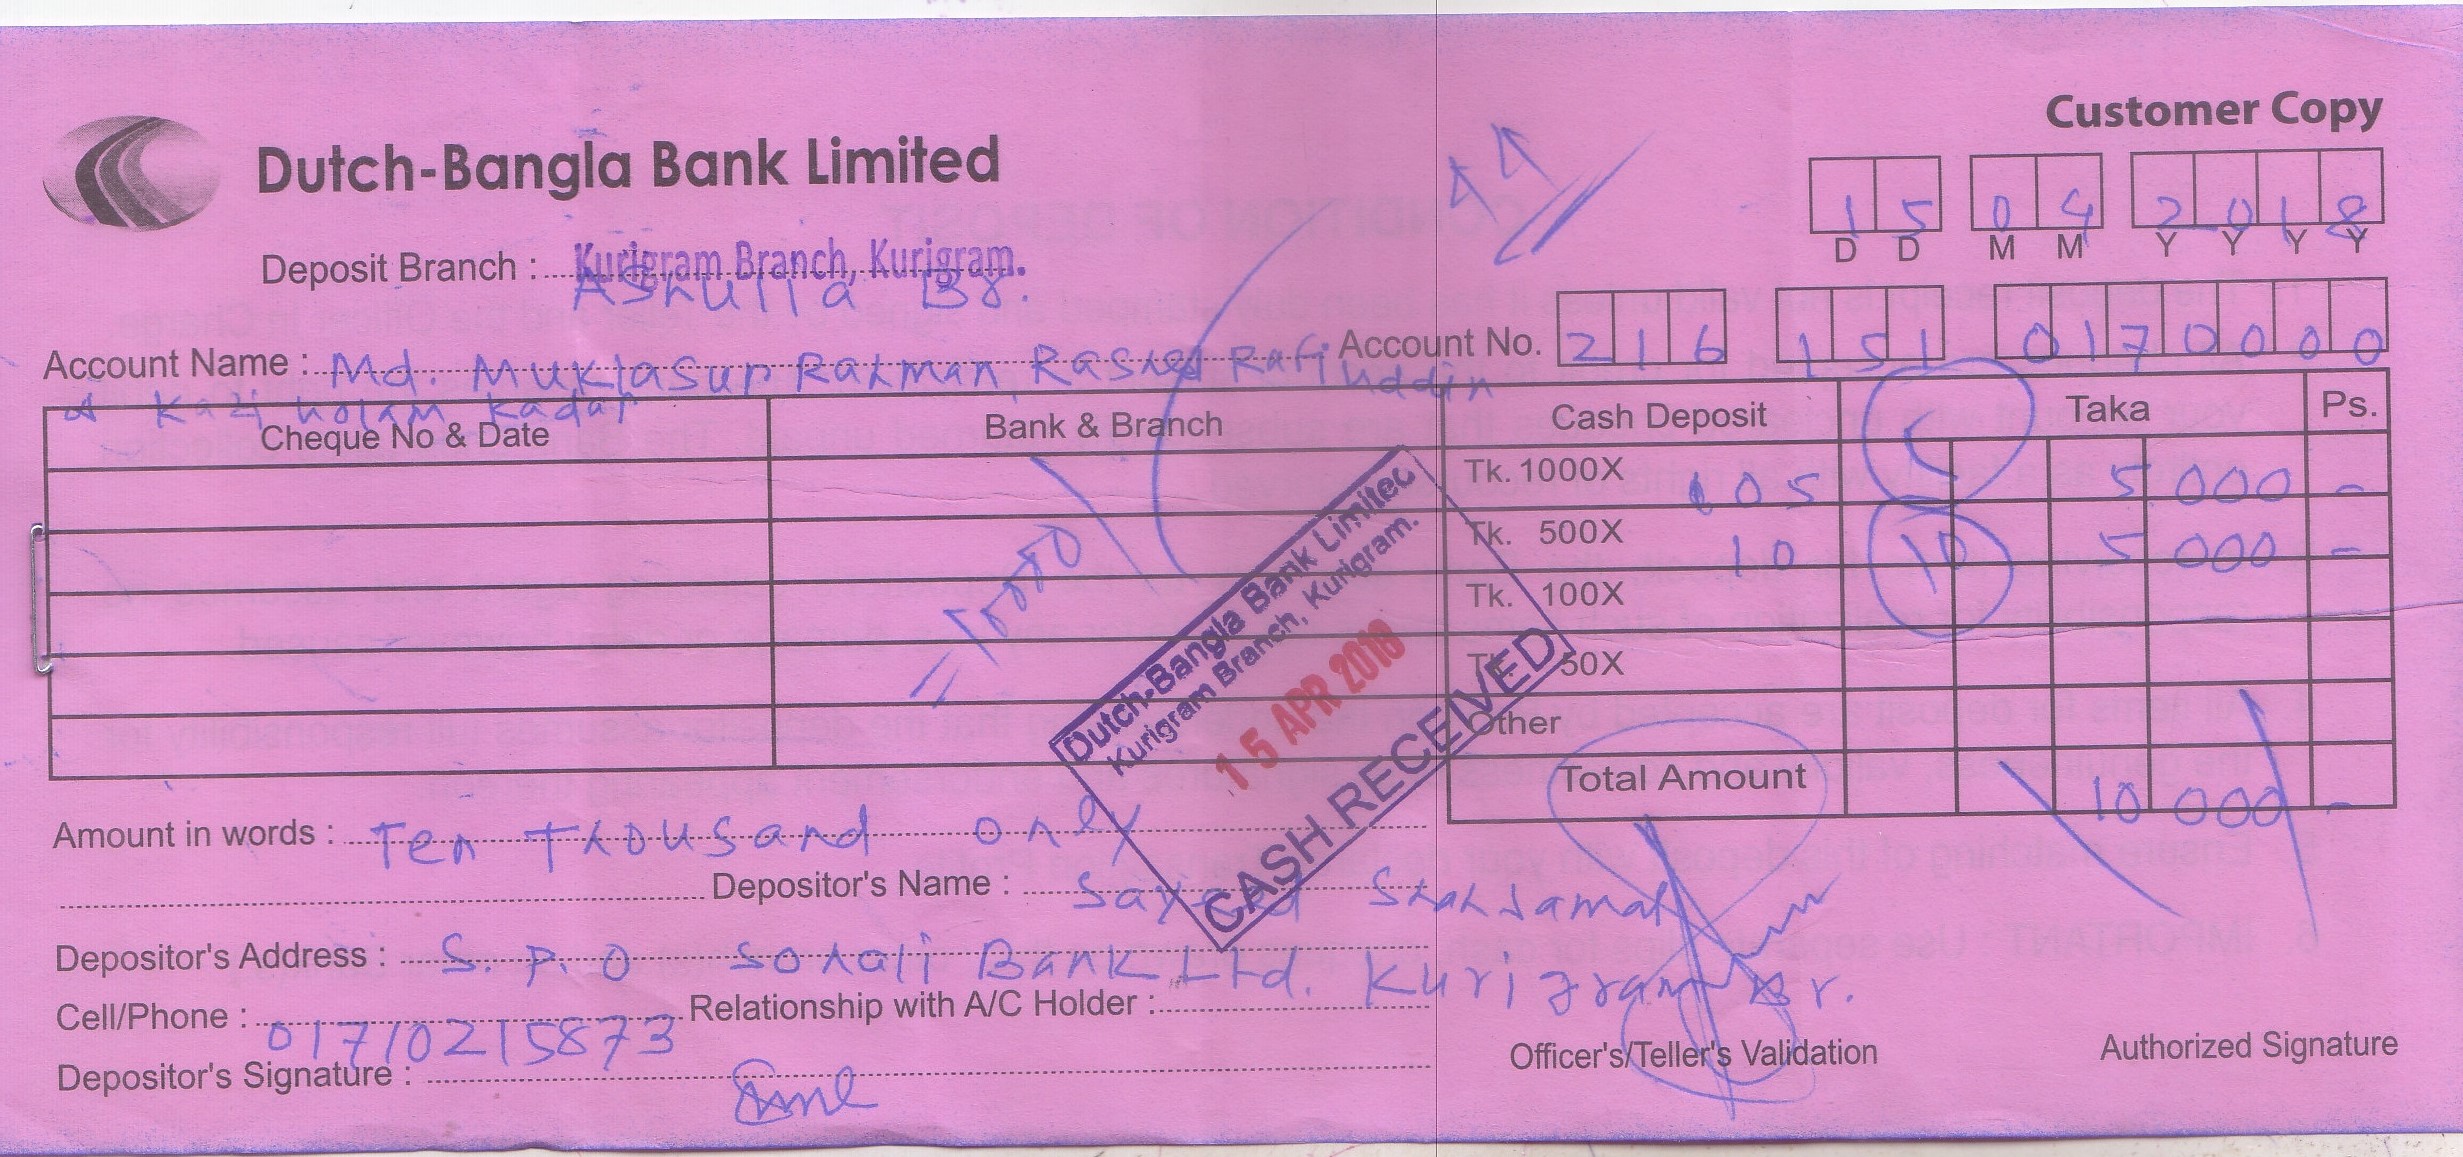 Customer Copy
Dutch-Bangla Bank Limited
15 04 2018
D D M M Y Y Y Y
Deposit Branch : Kurigram Branch, Kurigram.
Ashulia Br.
Account No. 216 151 0170000
Account Name : Md. Muklasur Rahman, Rashed Rafi uddin
& Kazi Golam Kadar
Cheque No & Date Bank & Branch Cash Deposit Taka Ps.
Tk. 1000X 05 5 5000 -
Tk. 500X 10 10 5000 -
Tk. 100X
Tk. 50X
Other
Total Amount 10 000 -
Dutch-Bangla Bank Limited
Kurigram Branch, Kurigram.
15 APR 2018
CASH RECEIVED
Amount in words : Ten Thousand only
Depositor's Name : Sayed Shah Jamal
Depositor's Address : S. P. O Sonali Bank Ltd. Kurigram Br.
Cell/Phone : 01710215873 Relationship with A/C Holder :
Depositor's Signature :
Officer's/Teller's Validation
Authorized Signature